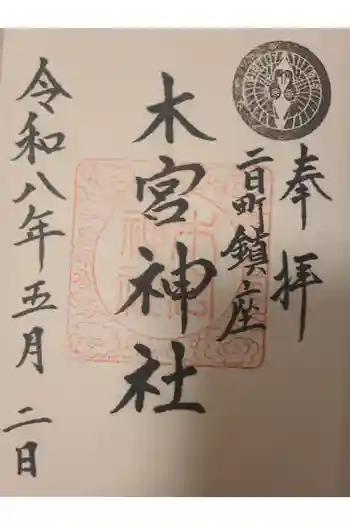 奉拝
二日町鎮座
木宮神社
令和八年五月二日